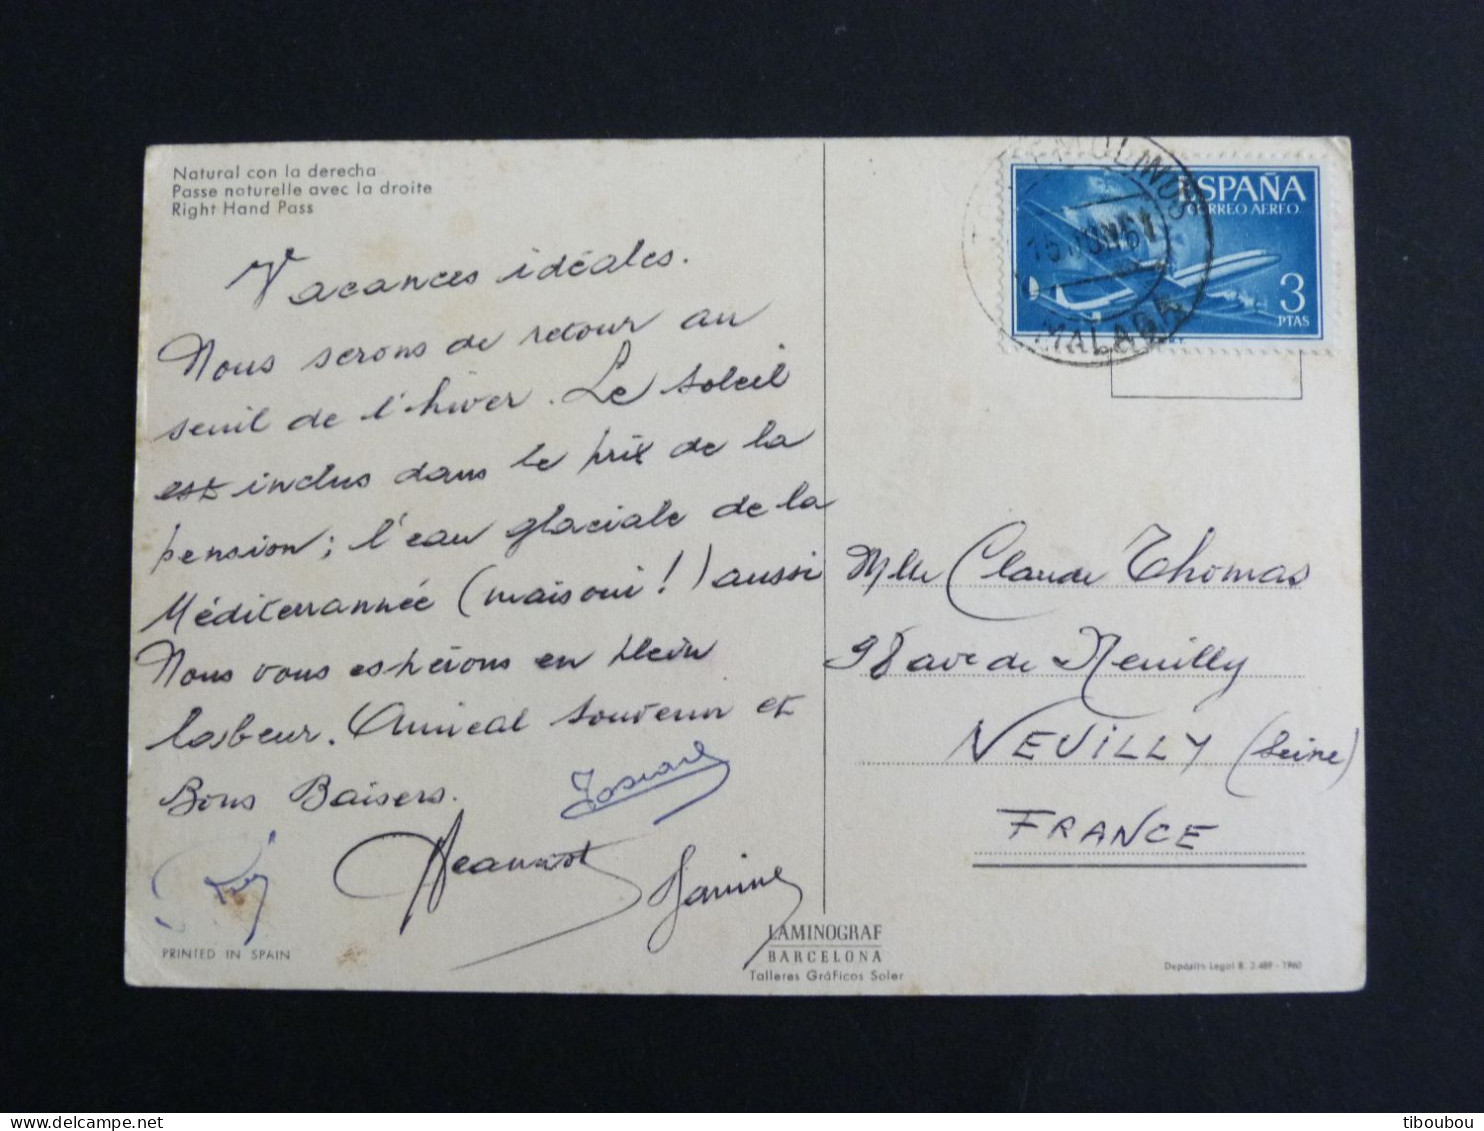 Natural con la derecha
Passe naturelle avec la droite
Right Hand Pass
Vacances idéales.
Nous serons de retour au
seuil de l'hiver. Le soleil
est inclus dans le prix de la
pension; l'eau glaciale de la
Méditerrannée (mais oui!) aussi
Nous vous espérons en plein
labeur. Amical souvenir et
Bons Baisers.
Jeannot
Janine
PRINTED IN SPAIN
LAMINOGRAF
BARCELONA
Talleres Gráficos Soler
ESPAÑA
CORREO AEREO
3
PTAS
TORREMOLINOS
15 JUN 61
MALAGA
Mlle Claude Thomas
98 ave de Neuilly
NEUILLY (Seine)
FRANCE
Depósito Legal B. 3.489 - 1960
tiboubou